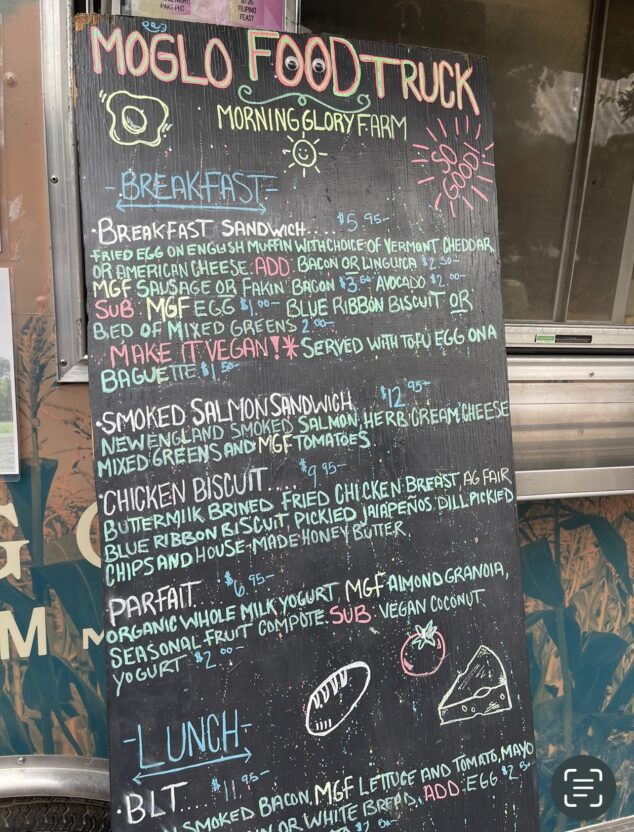 PART PHO
8/26
FILIPINO
FEAST
MOGLO FOOD TRUCK
MORNING GLORY FARM
SO
GOOD!
-BREAKFAST-
·BREAKFAST SANDWICH.... $5.95-
FRIED EGG ON ENGLISH MUFFIN WITH CHOICE OF VERMONT CHEDDAR
OR AMERICAN CHEESE. ADD: BACON OR LINGUICA $2.50-
MGF SAUSAGE OR FAKIN' BACON $3.50 AVOCADO $2.00-
SUB: MGF EGG $1.00- BLUE RIBBON BISCUIT OR
BED OF MIXED GREENS 2.00-
MAKE IT VEGAN!* SERVED WITH TOFU EGG ON A
BAGUETTE $1.50-
·SMOKED SALMON SANDWICH $12.95-
NEW ENGLAND SMOKED SALMON, HERB CREAM CHEESE
MIXED GREENS AND MGF TOMATOES
·CHICKEN BISCUIT.... $9.95-
BUTTERMILK BRINED FRIED CHICKEN BREAST, AG FAIR
BLUE RIBBON BISCUIT PICKLED JALAPEÑOS DILL PICKLED
CHIPS AND HOUSE-MADE HONEY BUTTER
·PARFAIT. $6.95-
ORGANIC WHOLE MILK YOGURT, MGF ALMOND GRANOIA,
SEASONAL FRUIT COMPOTE. SUB: VEGAN COCONUT
YOGURT $2.00-
-LUNCH-
·BLT.... $11.95-
SMOKED BACON, MGF LETTUCE AND TOMATO, MAYO
OR WHITE BREAD. ADD: EGG $2.50
G
M